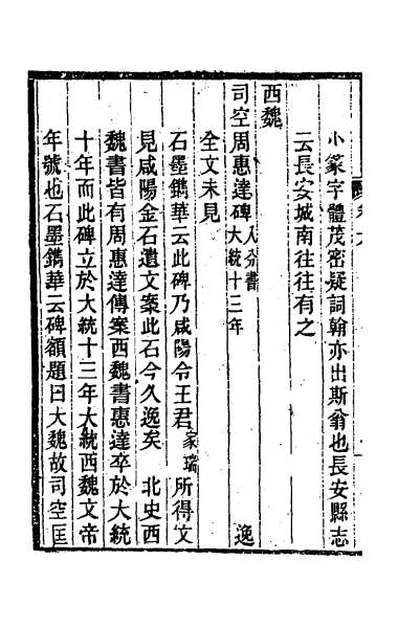 小篆字體茂密疑詞翰亦出斯翁也長安縣志
云長安城南往往有之
西魏
司空周惠達碑 八分書 大統十三年 逸
全文未見
石墨鐫華云此碑乃咸陽令王君家瑞所得文
見咸陽金石遺文案此石今久逸矣 北史西
魏書皆有周惠達傳案西魏書惠達卒於大統
十年而此碑立於大統十三年大統西魏文帝
年號也石墨鐫華云碑額題曰大魏故司空匡